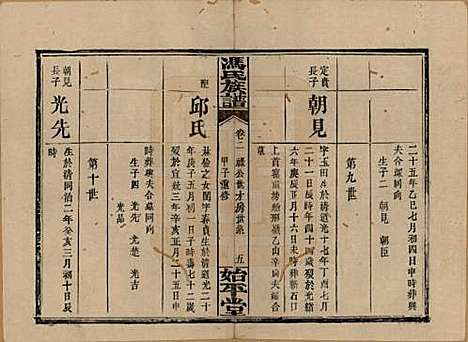 二十五年乙巳七月初四日申時葬
夫合塚同向
生子二 朝見 朝臣
第九世
定貴
長子
朝見
字玉田於清道光十七年丁酉七月
二十一日辰時壽四十四歲歿於光緒
六年庚辰正月十六日未時葬新石口
上首
墓
馮氏族譜
卷二
甲子重修
五
始平堂
配
邱氏
女閨字春貞生於清道光二十
七月初一日子時壽七十二歲
歿於宣統三年辛亥正月二十五日
時葬與夫合塚同向
生子四 光先 光楚 光吉
光晶
第十世
朝見
長子
光先
生於清同治二年癸亥三月初十日辰
時